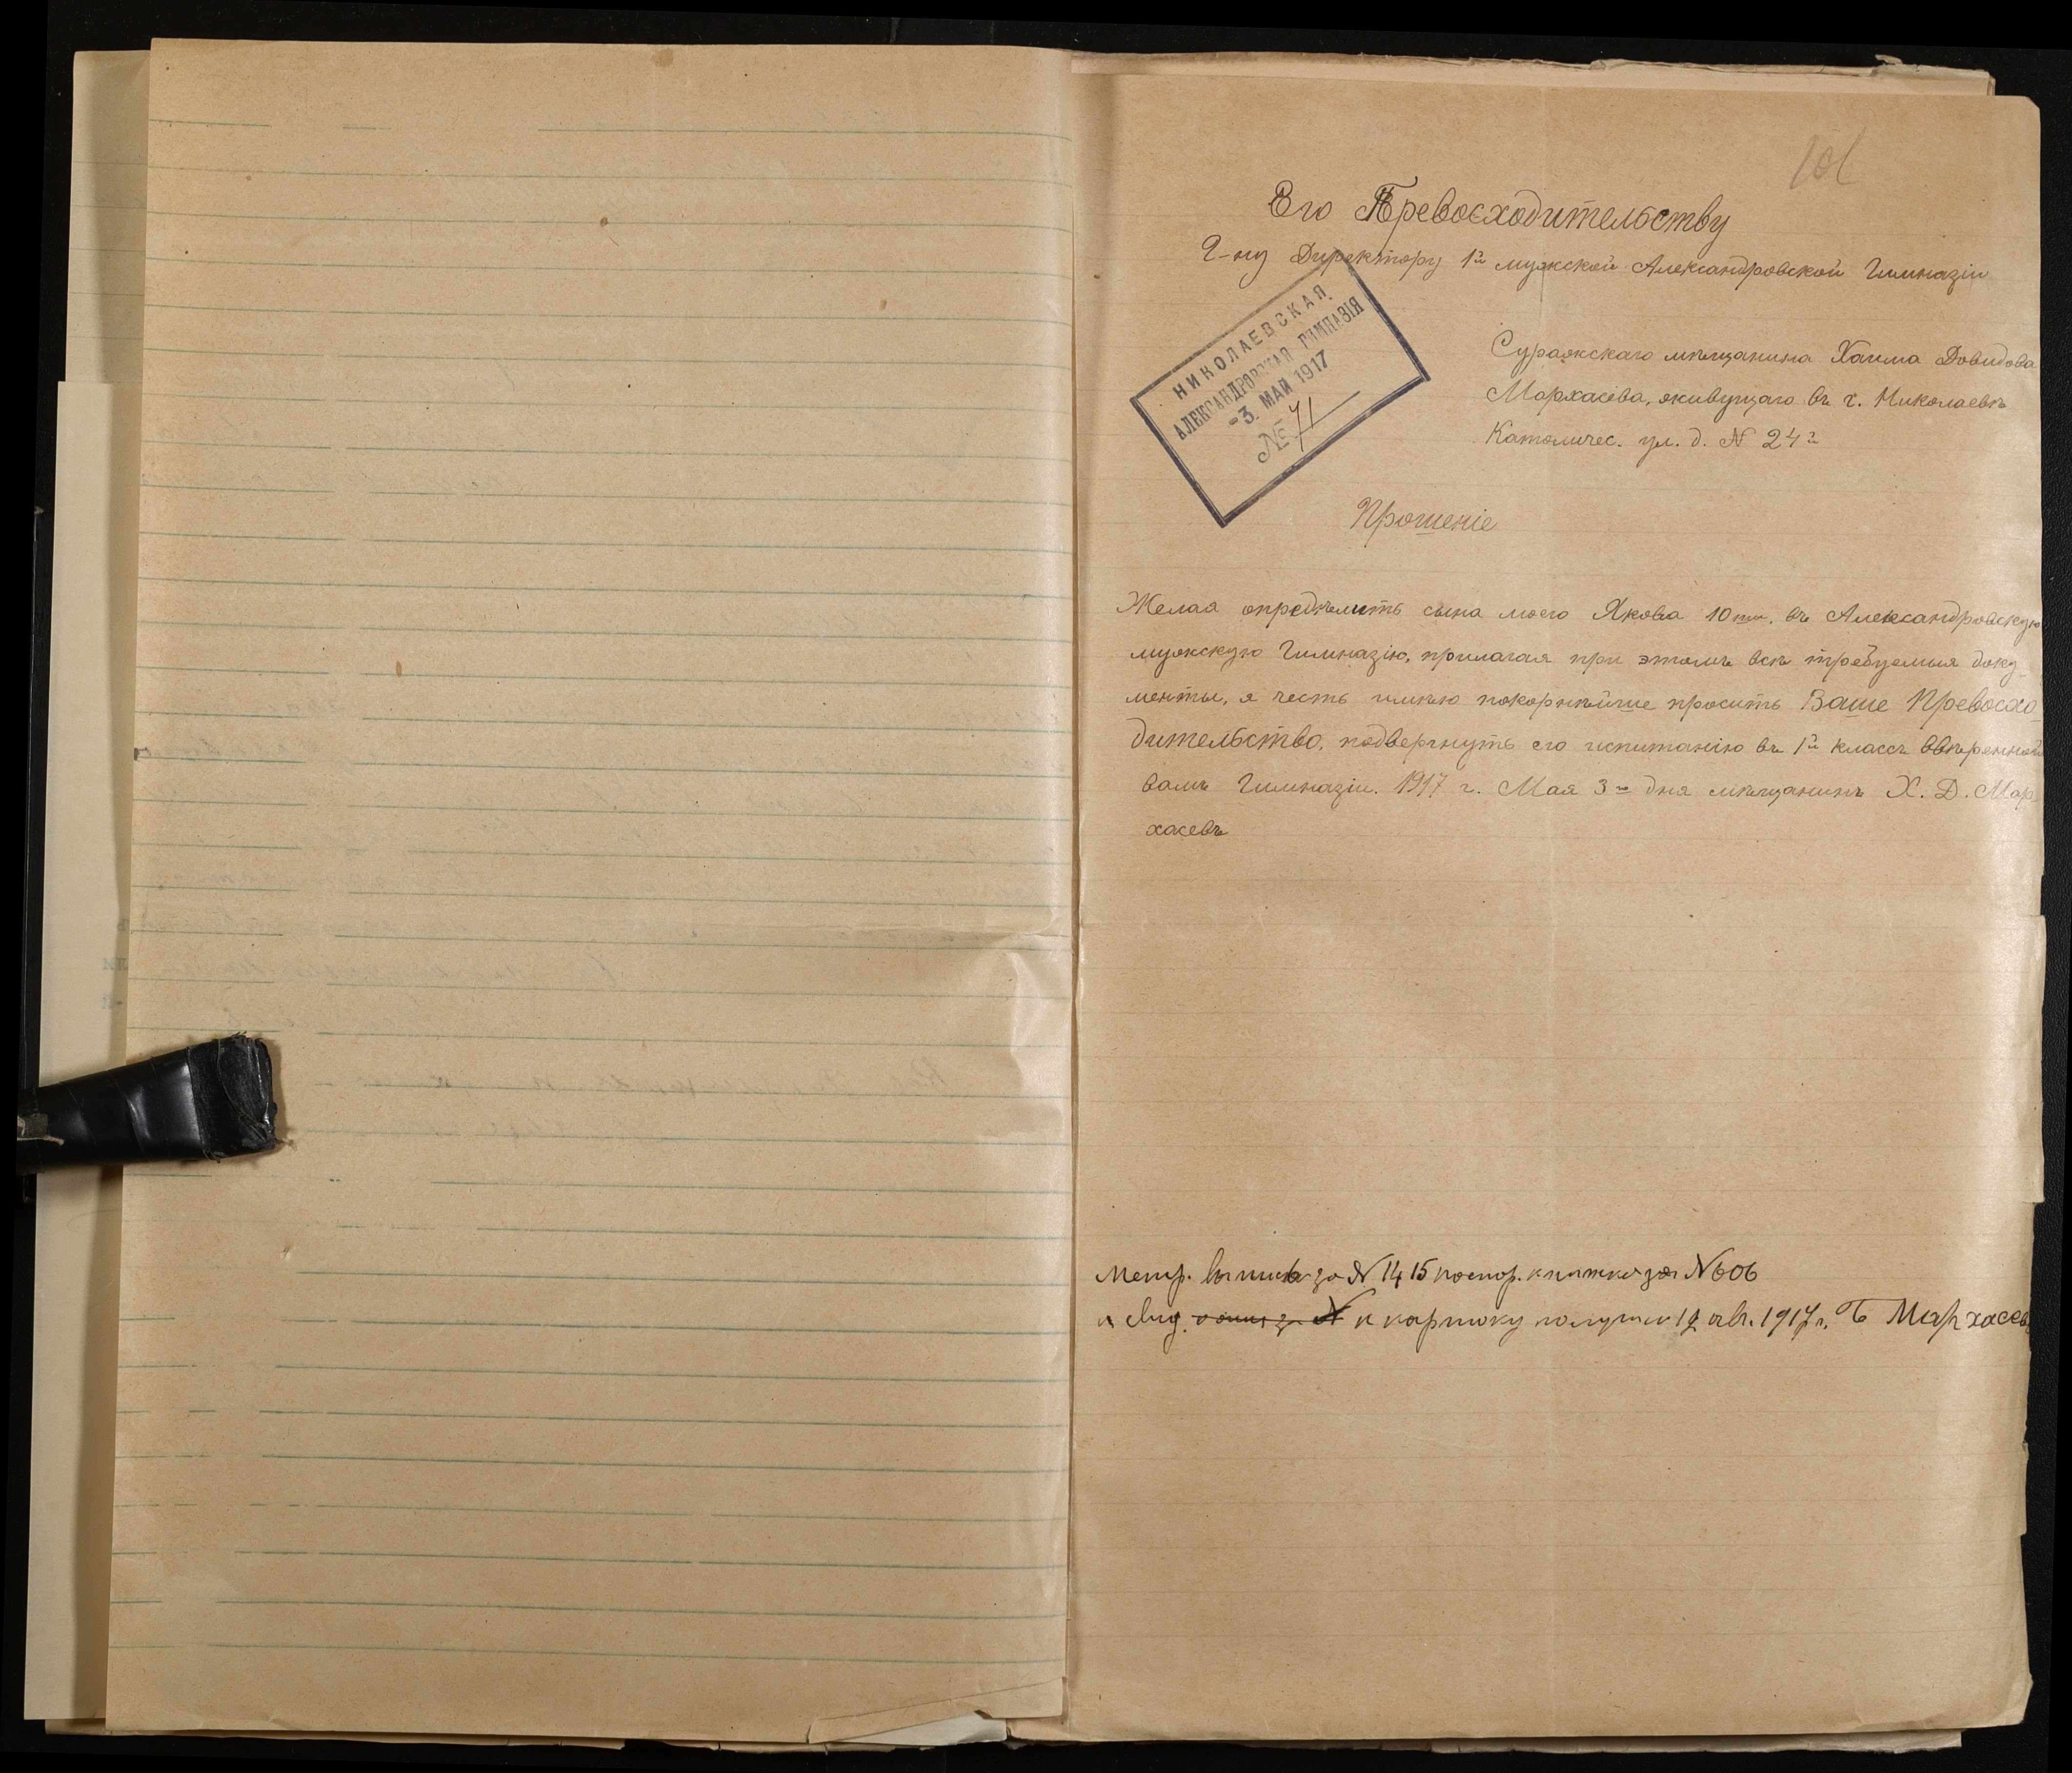 101
Его Превосходительству
Г-ну Директору 1й мужской Александровской Гимназіи
НИКОЛАЕВСКАЯ
АЛЕКСАНДРОВСКАЯ ГИМНАЗІЯ
-3. МАЙ 1917
№ 71
Суражскаго мѣщанина Хаима Довидова
Мархасева, живущаго въ г. Николаевѣ
Католичес. ул. д. N 24
Прошеніе
Желая опредѣлить сына моего Якова 10 въ Александровскую
мужскую Гимназію, прилагая при этомъ всѣ требуемыя доку-
менты, я честь имѣю покорнѣйше просить Ваше Превосхо-
дительство, подвергнуть его испытанію въ 1й классъ ввѣренной
вамъ Гимназіи. 1917 г. Мая 3го дня мѣщанинъ Х. Д. Мар-
хасевъ
Метр. выпись за N 1415 паспор. книжка за N 606
и карточку получил 12 авг. 1917 г. Мархасевъ